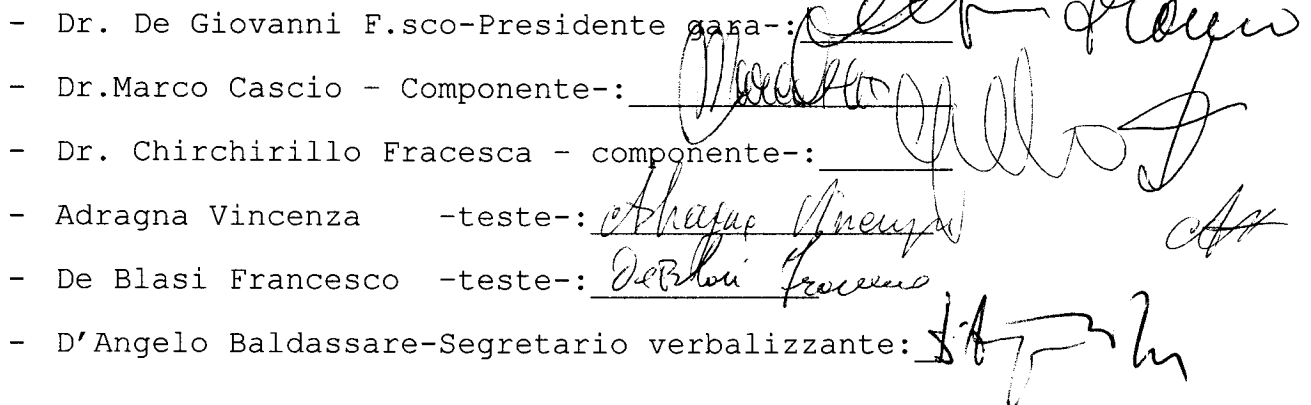 - Dr. De Giovanni F.sco-Presidente gara-:
- Dr.Marco Cascio - Componente-:
- Dr. Chirchirillo Fracesca - componente-:
- Adragna Vincenza -teste-: Adragna Vincenza
- De Blasi Francesco -teste-: De Blasi Francesco
- D'Angelo Baldassare-Segretario verbalizzante: